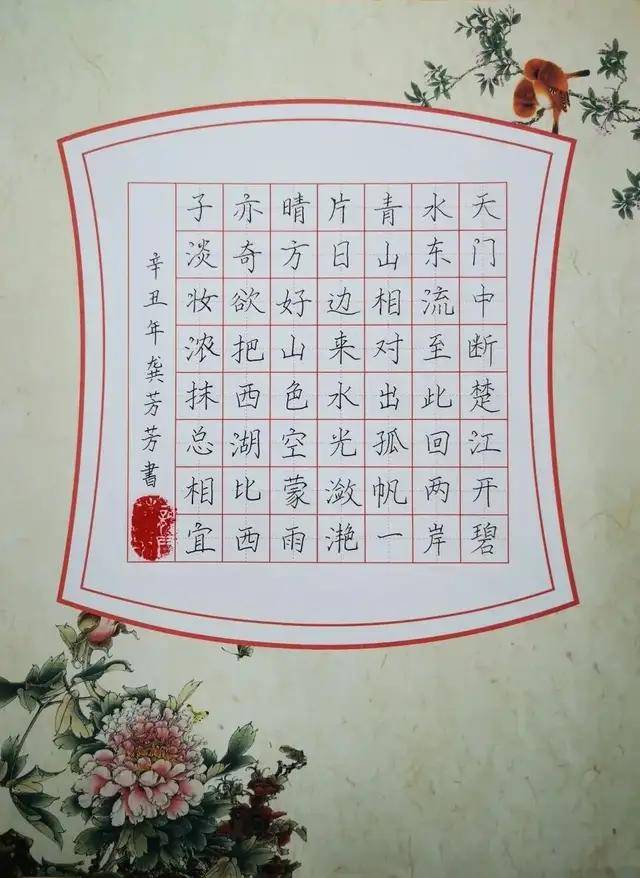 天门中断楚江开碧
水东流至此回两岸
青山相对出孤帆一
片日边来水光潋滟
晴方好山色空蒙雨
亦奇欲把西湖比西
子淡妆浓抹总相宜
辛丑年龚芳芳书